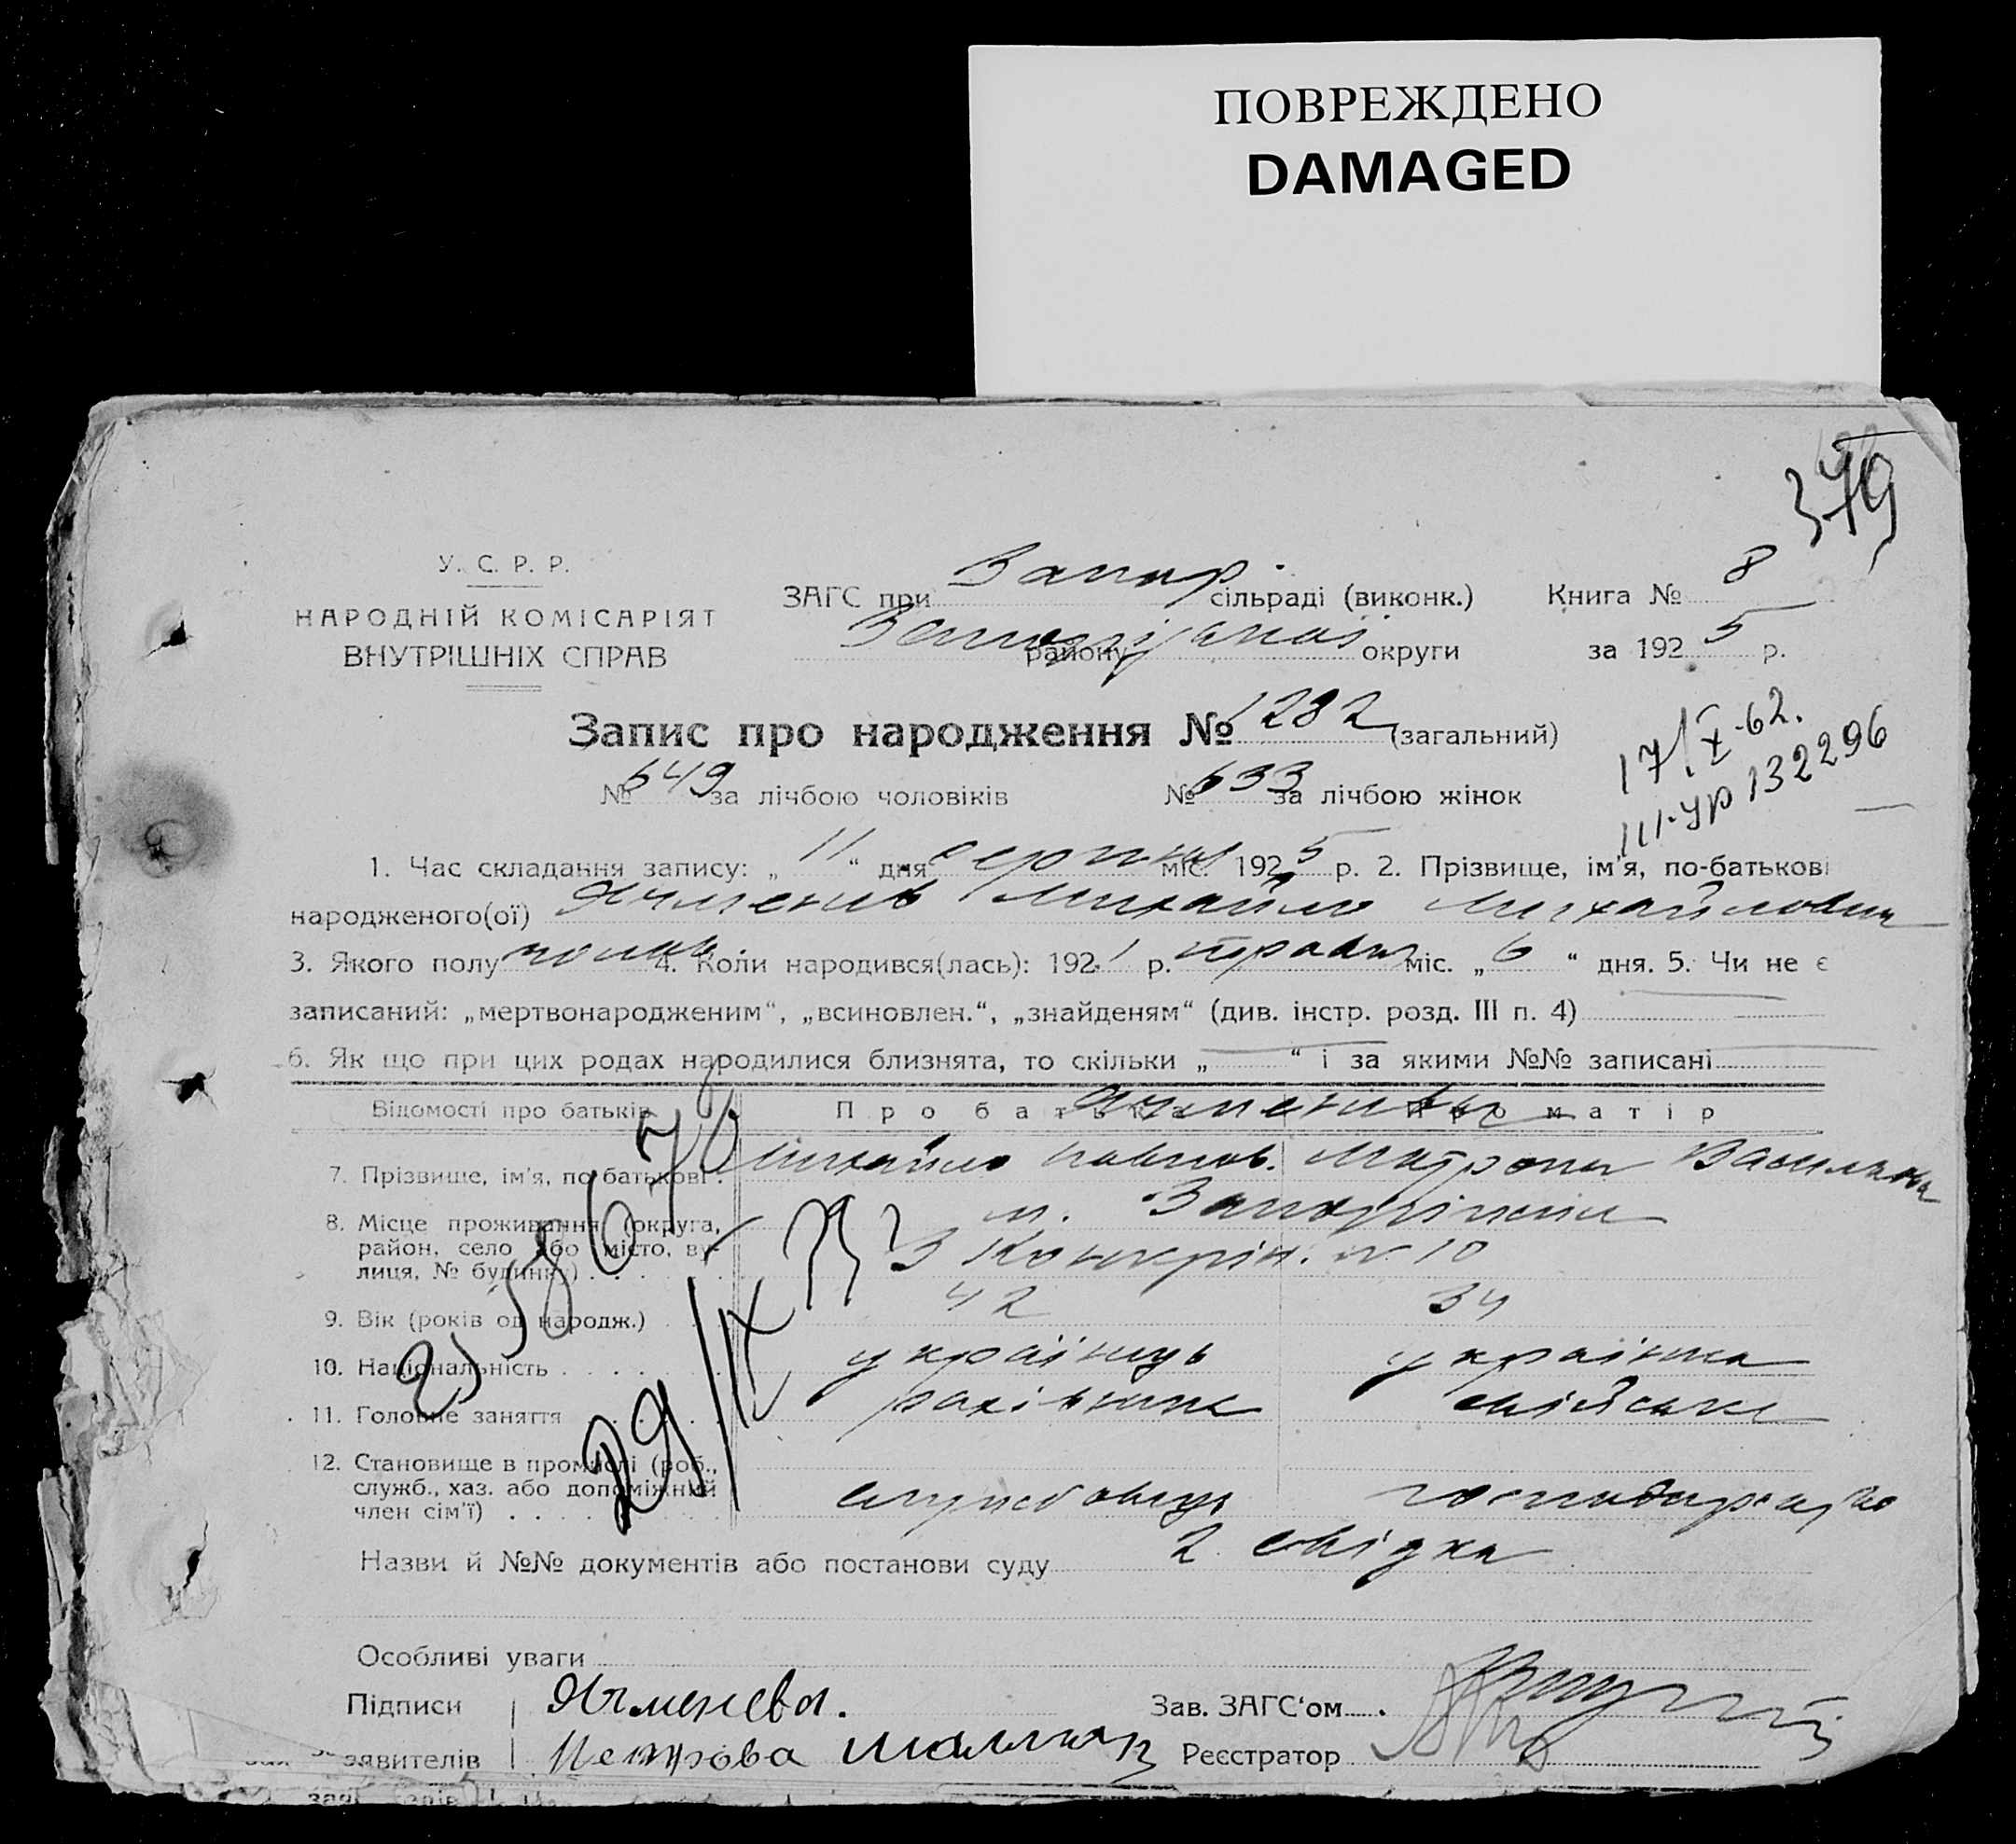 ПОВРЕЖДЕНО
DAMAGED
379
У. С. Р. Р.
НАРОДНІЙ КОМІСАРІЯТ
ВНУТРІШНІХ СПРАВ
ЗАГС при Запор. сільраді (виконк.) Книга № 8
району округи за 1925 р.
Запис про народження № 1282 (загальний)
№ 649 за лічбою чоловіків № 633 за лічбою жінок
17/X-62.
III-УР 132296
1. Час складання запису: „ 11 “ дня серпня міс. 1925 р. 2. Прізвище, ім'я, по-батькові
народженого(ої) Ячменів Михайло Михайлович
3. Якого полу чолов. 4. Коли народився(лась): 1921 р. травня міс. „ 6 “ дня. 5. Чи не є
записаний: „мертвонародженим“, „всиновлен.“, „знайденям“ (див. інстр. розд. III п. 4)
6. Як що при цих родах народилися близнята, то скільки „ “ і за якими №№ записані
Відомості про батьків Про батька Про матір
Ячменіви
7. Прізвище, ім'я, по батькові Михайло Павлов. Мотрона Василівна
8. Місце проживання (округа, м. Запоріжжя
район, село або місто, ву-
лиця, № будинку) № 10
9. Вік (років од народж.) 42 34
10. Національність українець українка
11. Головне заняття рахівник хатньє
12. Становище в промислі (роб.,
служб., хаз. або допоміжний
член сім'ї) службовець
29/IX
Назви й №№ документів або постанови суду 2 свідка
Особливі уваги
Підписи Ячменева. Зав. ЗАГС'ом
заявителів Петрова Реєстратор